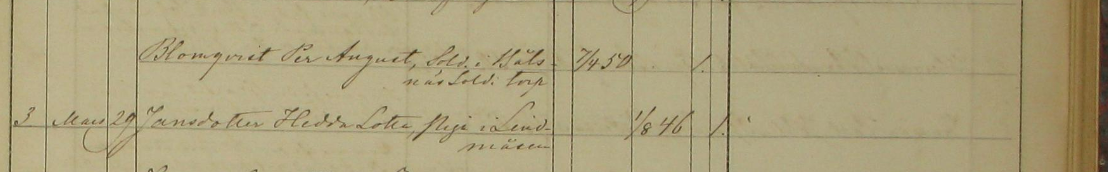 Blomqvist Per August, Sold. i Håls- 7/4 50 1.
näs Sold. torp
3 Mars 29 Jansdotter Hedda Lotta, Piga i Lind- 1/8 46 1.
måsen